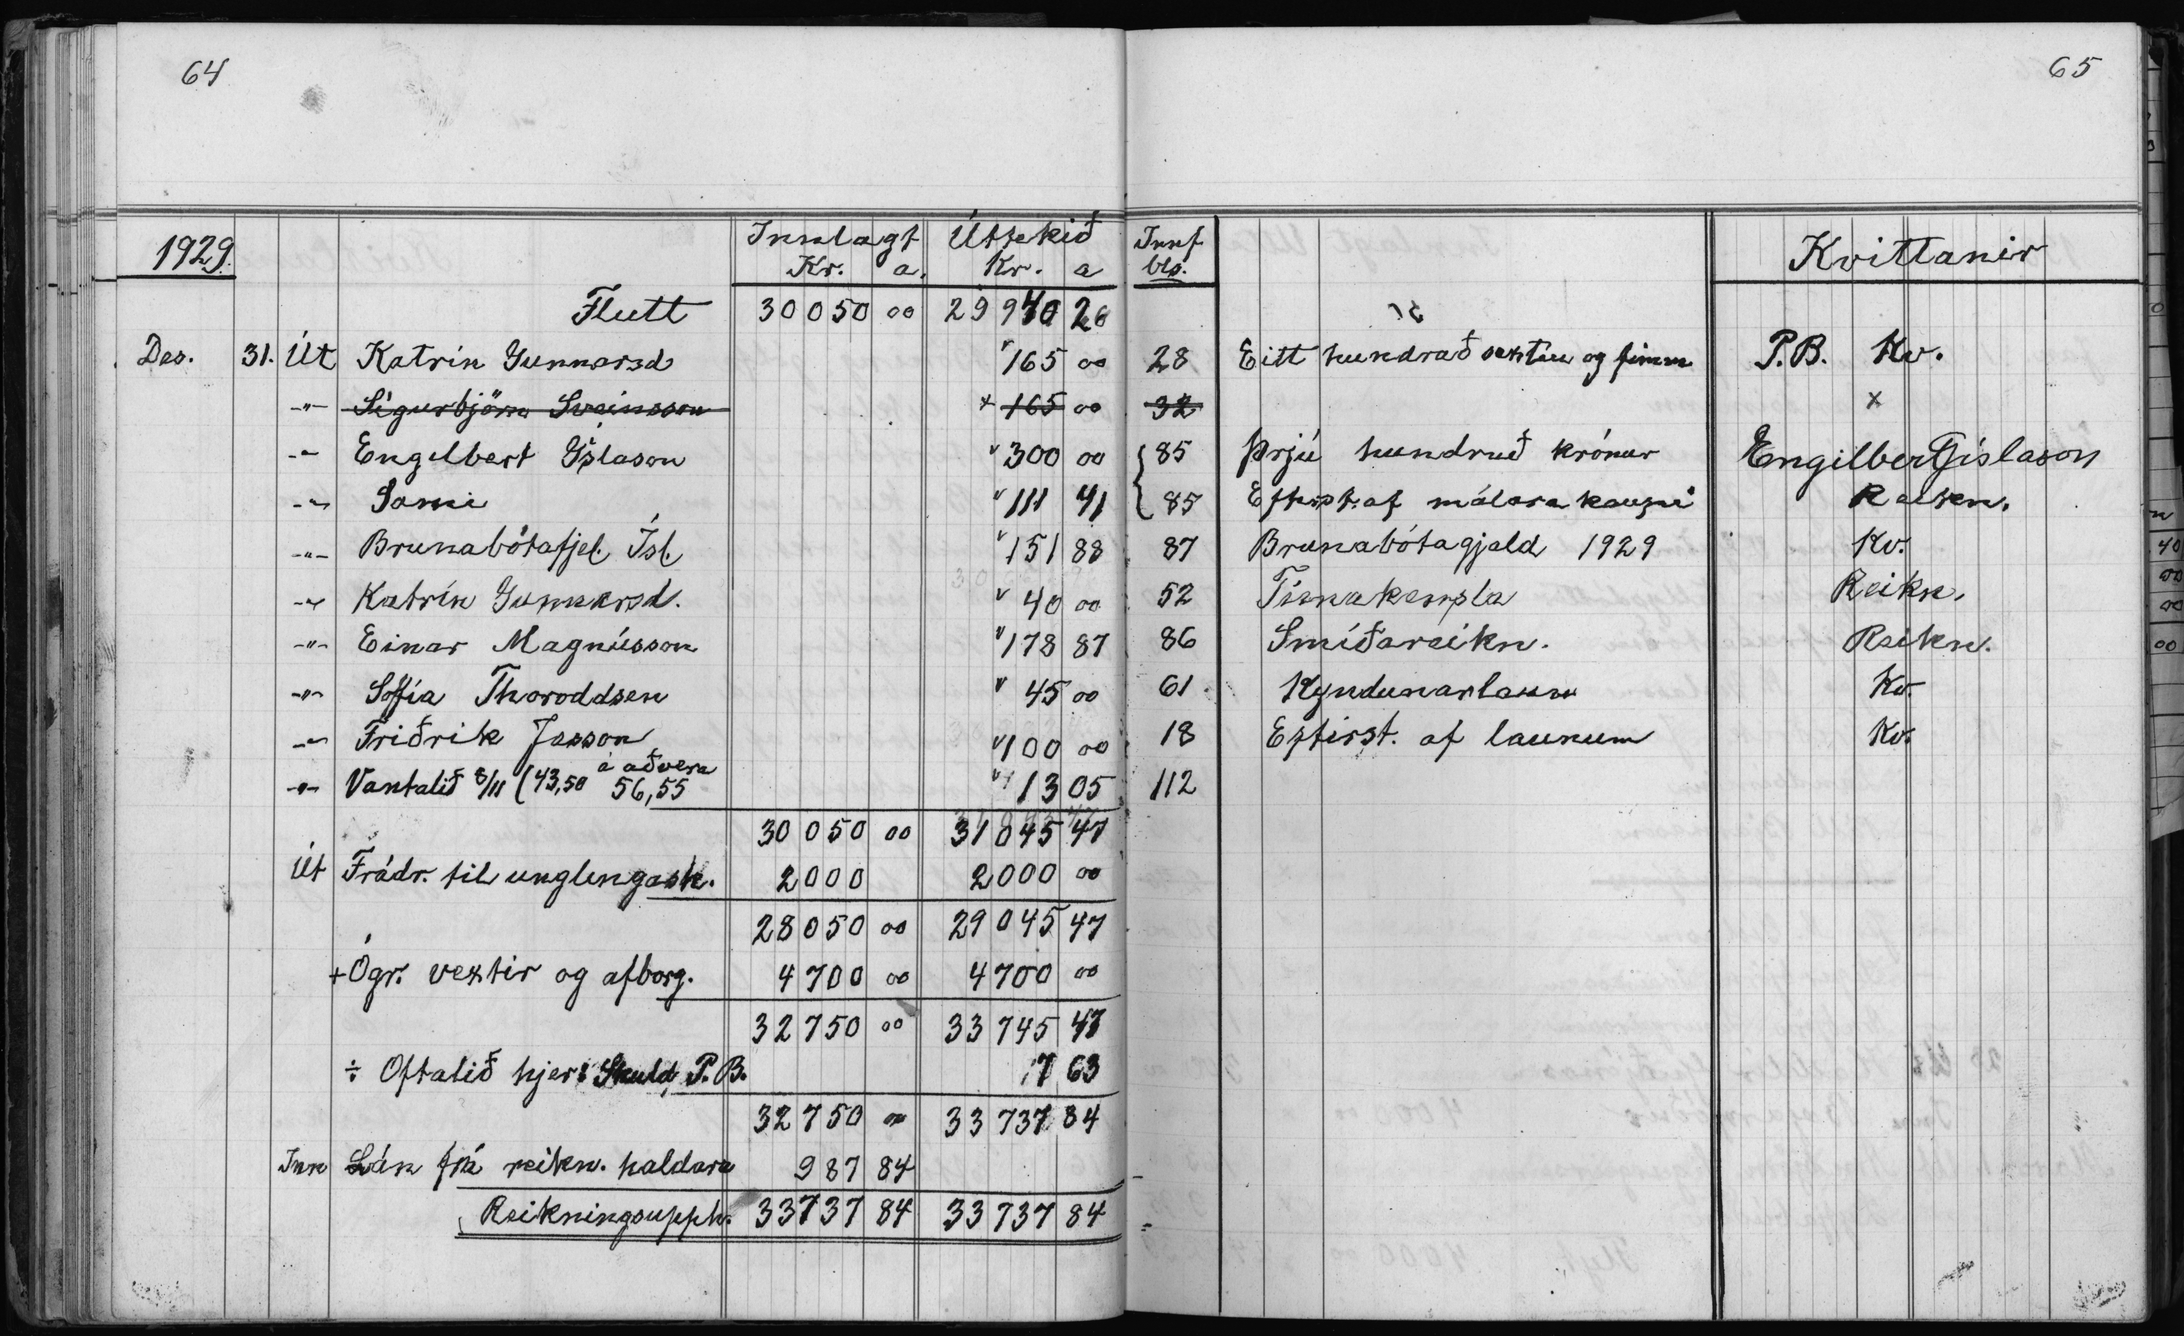 64
65
1929. Innlagt Úttekið Innf Kvittanir
Kr. a. Kr. a bls.
Flutt 30050 00 29940 26
Des. 31. Út Katrín Gunnarsd " 165 00 28 Eitt hundrað sextíu og fimm P.B. Kv.
-"- Sigurbjörn Sveinsson × 165 00 32 ×
-"- Engilbert Gíslason " 300 00 85 Þrjú hundruð krónur Engilbert Gíslason
-"- Sami " 111 41 85 Eftirst. af málarakaupi Reikn.
-"- Brunabótafjel. Ísl. " 151 88 87 Brunabótagjald 1929 Kv.
-"- Katrín Gunnarsd. " 40 00 52 Reikn.
-"- Einar Magnússon " 178 87 86 Smíðareikn. Reikn.
-"- Soffía Thoroddsen " 45 00 61 Kyndunarlaun Kv.
-"- Friðrik Jesson " 100 00 18 Eftirst. af launum Kv.
-"- Vantalið 8/11 (43,50 á að vera 56,55 " 13 05 112
30050 00 31045 47
Út Frádr. til unglingask. 2000 2000 00
28050 00 29045 47
+ Ógr. vextir og afborg. 4700 00 4700 00
32750 00 33745 47
÷ Oftalið hjer: Skuld P.B. 7 63
32750 00 33737 84
Inn Lán frá reikn. haldara 987 84
Reikningsupph. 33737 84 33737 84